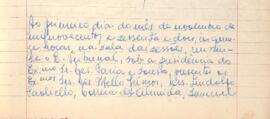 Ao primeiro dia do mês de novembro de
mil novecentos e sessenta e dois, às quin-
ze horas, na sala das sessões, reuniu-
se o E. Tribunal, sob a presidência do
Exmo Sr. Des. Faria e Sousa, presentes os
Exmos Srs. Des. Mello Junior, Des. Lindolfo
Paoliello, Correia de Almada, Samuel